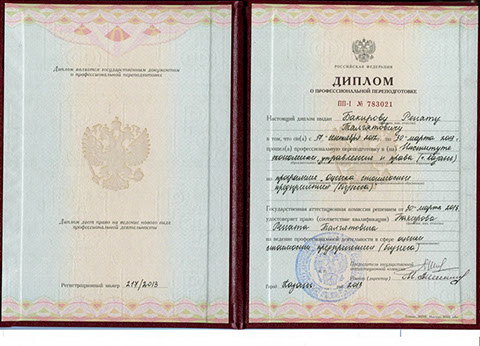 Диплом является государственным документом
о профессиональной переподготовке
Диплом дает право на ведение нового вида
профессиональной деятельности
Регистрационный номер 217/2013
РОССИЙСКАЯ ФЕДЕРАЦИЯ
ДИПЛОМ
О ПРОФЕССИОНАЛЬНОЙ ПЕРЕПОДГОТОВКЕ
ПП-I № 783021
Настоящий диплом выдан Бакирову Ренату
Талгатовичу
в том, что он(а) с 17 сентября 2012 по 30 марта 2013
прошел(а) профессиональную переподготовку в (на) Институте
экономики, управления и права (г. Казань)
по программе Оценка стоимости
предприятия (бизнеса)
Государственная аттестационная комиссия решением от 30 марта 2013
удостоверяет право (соответствие квалификации) Бакирова
Рената Талгатовича
на ведение профессиональной деятельности в сфере оценки
стоимости предприятия (бизнеса)
Председатель государственной
аттестационной комиссии
Ректор (директор)
Город Казань год 2013